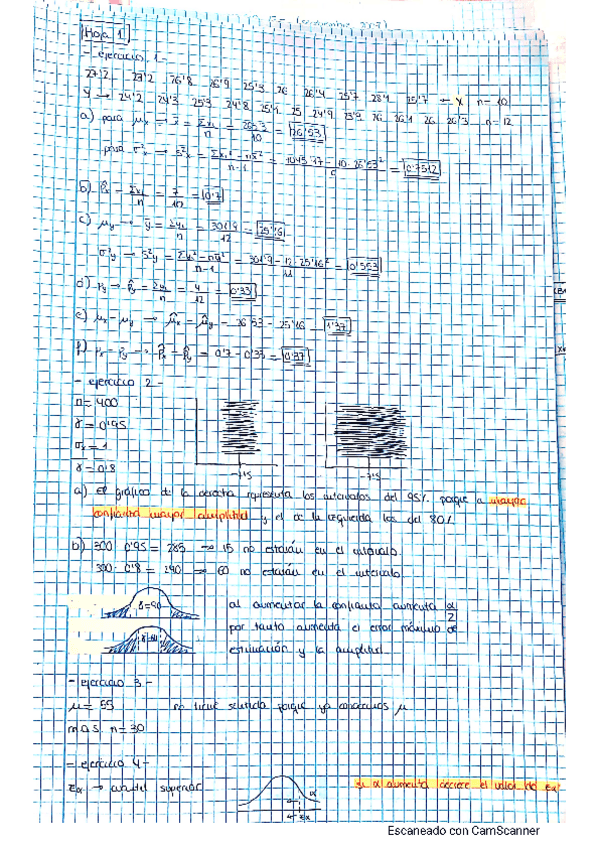 Hoja 1
- ejercicio 1 -
27'2 27'2 26'8 26'9 25'3 26 26'4 25'7 28'1 25'7 ← x n=10
y → 24'2 24'3 25'3 24'8 25'4 25 24'9 23'9 26 26'1 26 26'3 n=12
a) para μx → x̄ = Σxi/n = 265'3/10 = 26'53
para σ²x → s²x = = 0'7512
b) p̂x = Σxi/n = 7/10 = 0'7
c) μy → ȳ = Σyi/n = 301'9/12 = 25'16
σ²y → s²y = = 0'553
d) py → p̂y = Σyi/n = 4/12 = 0'33
e) μx - μy → μ̂x - μ̂y = 26'53 - 25'16 = 1'37
f) px - py → p̂x - p̂y = 0'7 - 0'33 = 0'37
- ejercicio 2 -
n = 400
γ = 0'95
σx = 1
γ = 0'8
a) El gráfico de la derecha representa los intervalos del 95% porque a mayor
confianza mayor amplitud y el de la izquierda los del 80%
b) 300 · 0'95 = 285 → 15 no estarán en el intervalo
300 · 0'8 = 240 → 60 no estarán en el intervalo
al aumentar la confianza aumenta α/2
por tanto aumenta el error máximo de
estimación y la amplitud
- ejercicio 3 -
μ = 55 no tiene sentido porque ya conocemos μ
m.a.s. n=30
- ejercicio 4 -
zα → cuantil superior α zα si α aumenta decrece el valor de zα
Escaneado con CamScanner